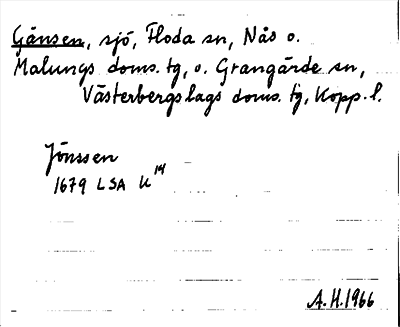 Gänsen, sjö, Floda sn, Nås o.
Malungs doms. tg, o. Grangärde sn,
Västerbergslags doms. tg, Kopp. l.
Jönssen
1679 LSA U 14
A.H. 1966